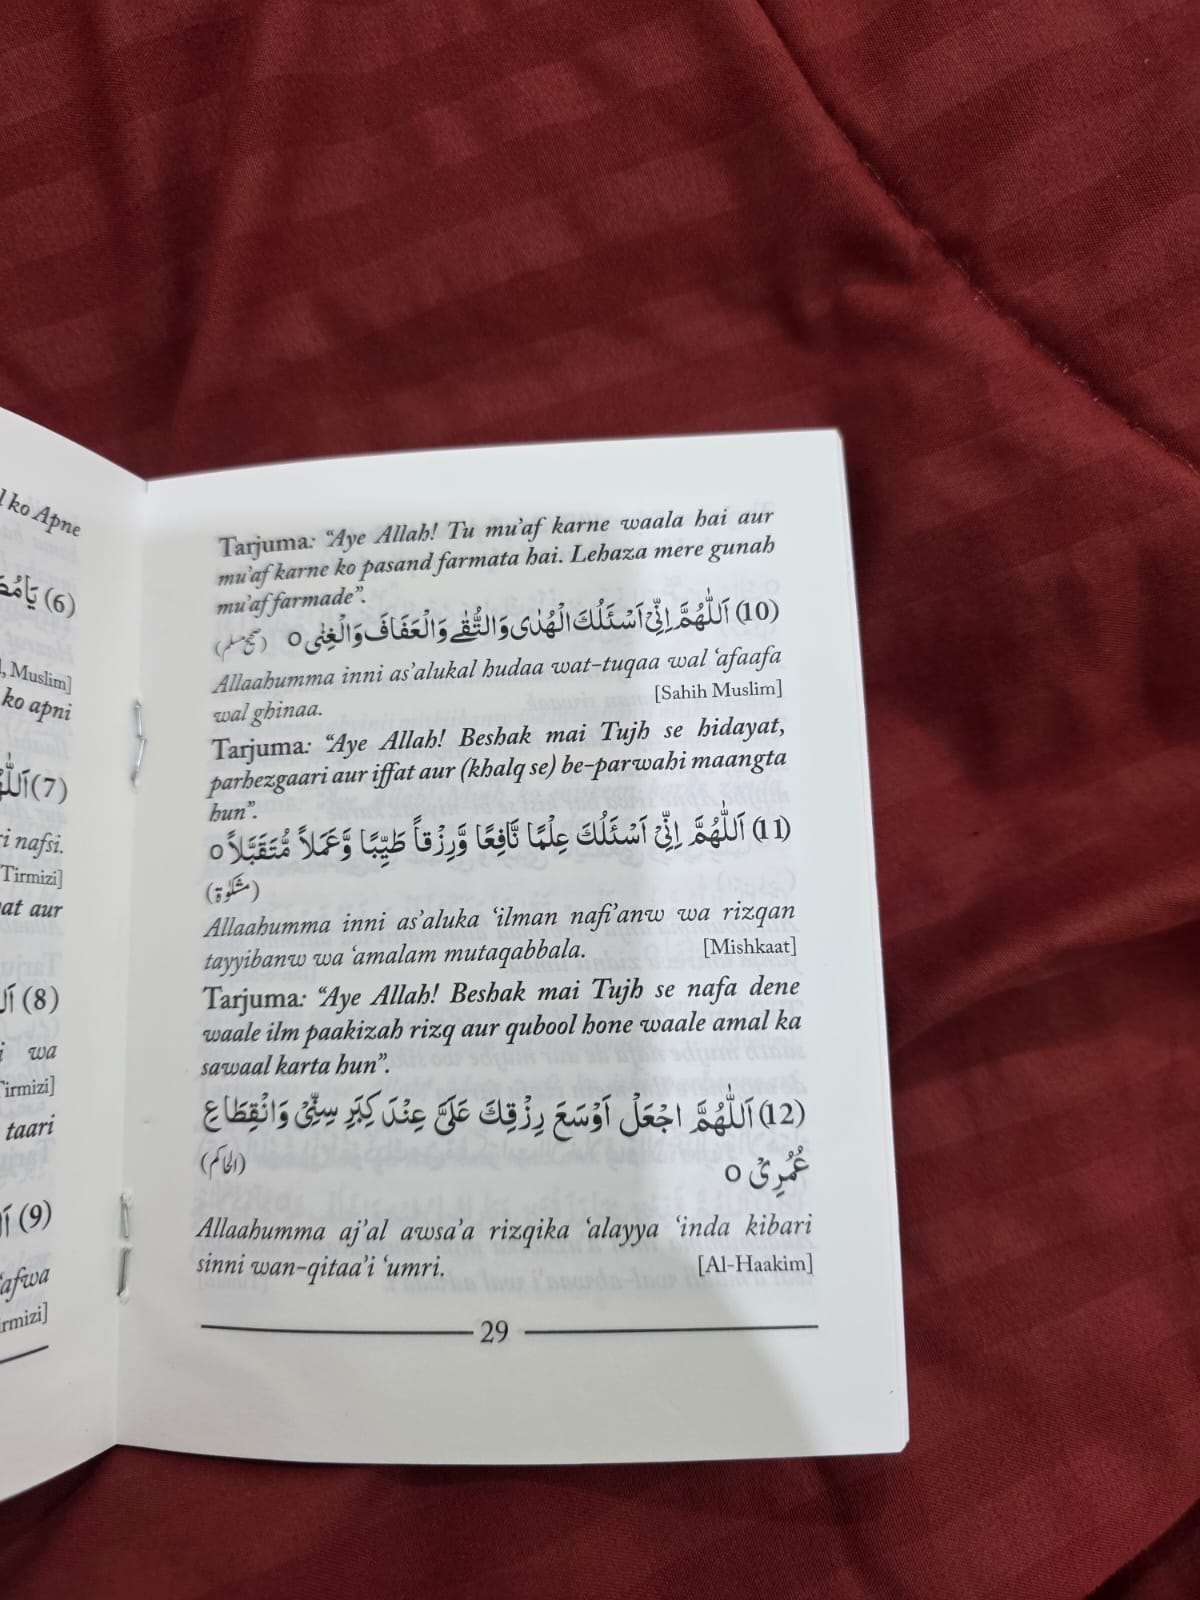 l ko Apne
(6) يَامُصَ
l, Muslim]
ko apni
(7) اَللّٰهُ
i nafsi.
Tirmizi]
at aur
(8) اَل
i wa
Tirmizi]
taari
(9) اَل
‘afwa
irmizi]
Tarjuma: “Aye Allah! Tu mu’af karne waala hai aur
mu’af karne ko pasand farmata hai. Lehaza mere gunah
mu’af farmade”.
(10) اَللّٰهُمَّ اِنِّیْ اَسْئَلُكَ الْهُدٰی وَالتُّقٰی وَالْعَفَافَ وَالْغِنٰی ○ (صحیح مسلم)
Allaahumma inni as’alukal hudaa wat-tuqaa wal ‘afaafa
wal ghinaa. [Sahih Muslim]
Tarjuma: “Aye Allah! Beshak mai Tujh se hidayat,
parhezgaari aur iffat aur (khalq se) be-parwahi maangta
hun”.
(11) اَللّٰهُمَّ اِنِّیْ اَسْئَلُكَ عِلْمًا نَّافِعًا وَّرِزْقاً طَيِّبًا وَّعَمَلاً مُّتَقَبَّلاً ○
(مشکوٰۃ)
Allaahumma inni as’aluka ‘ilman nafi’anw wa rizqan
tayyibanw wa ‘amalam mutaqabbala. [Mishkaat]
Tarjuma: “Aye Allah! Beshak mai Tujh se nafa dene
waale ilm paakizah rizq aur qubool hone waale amal ka
sawaal karta hun”.
(12) اَللّٰهُمَّ اجْعَلْ اَوْسَعَ رِزْقِكَ عَلَیَّ عِنْدَ كِبَرِ سِنِّیْ وَانْقِطَاعِ
عُمُرِیْ ○ (الحاکم)
Allaahumma aj’al awsa’a rizqika ‘alayya ‘inda kibari
sinni wan-qitaa’i ‘umri. [Al-Haakim]
29